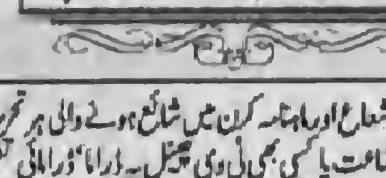 شعاع اور ماہنامہ کرن میں شائع ہونے والی ہر تحریر
یا کسی بھی ٹی وی چینل پہ ڈراما، ڈرامائی